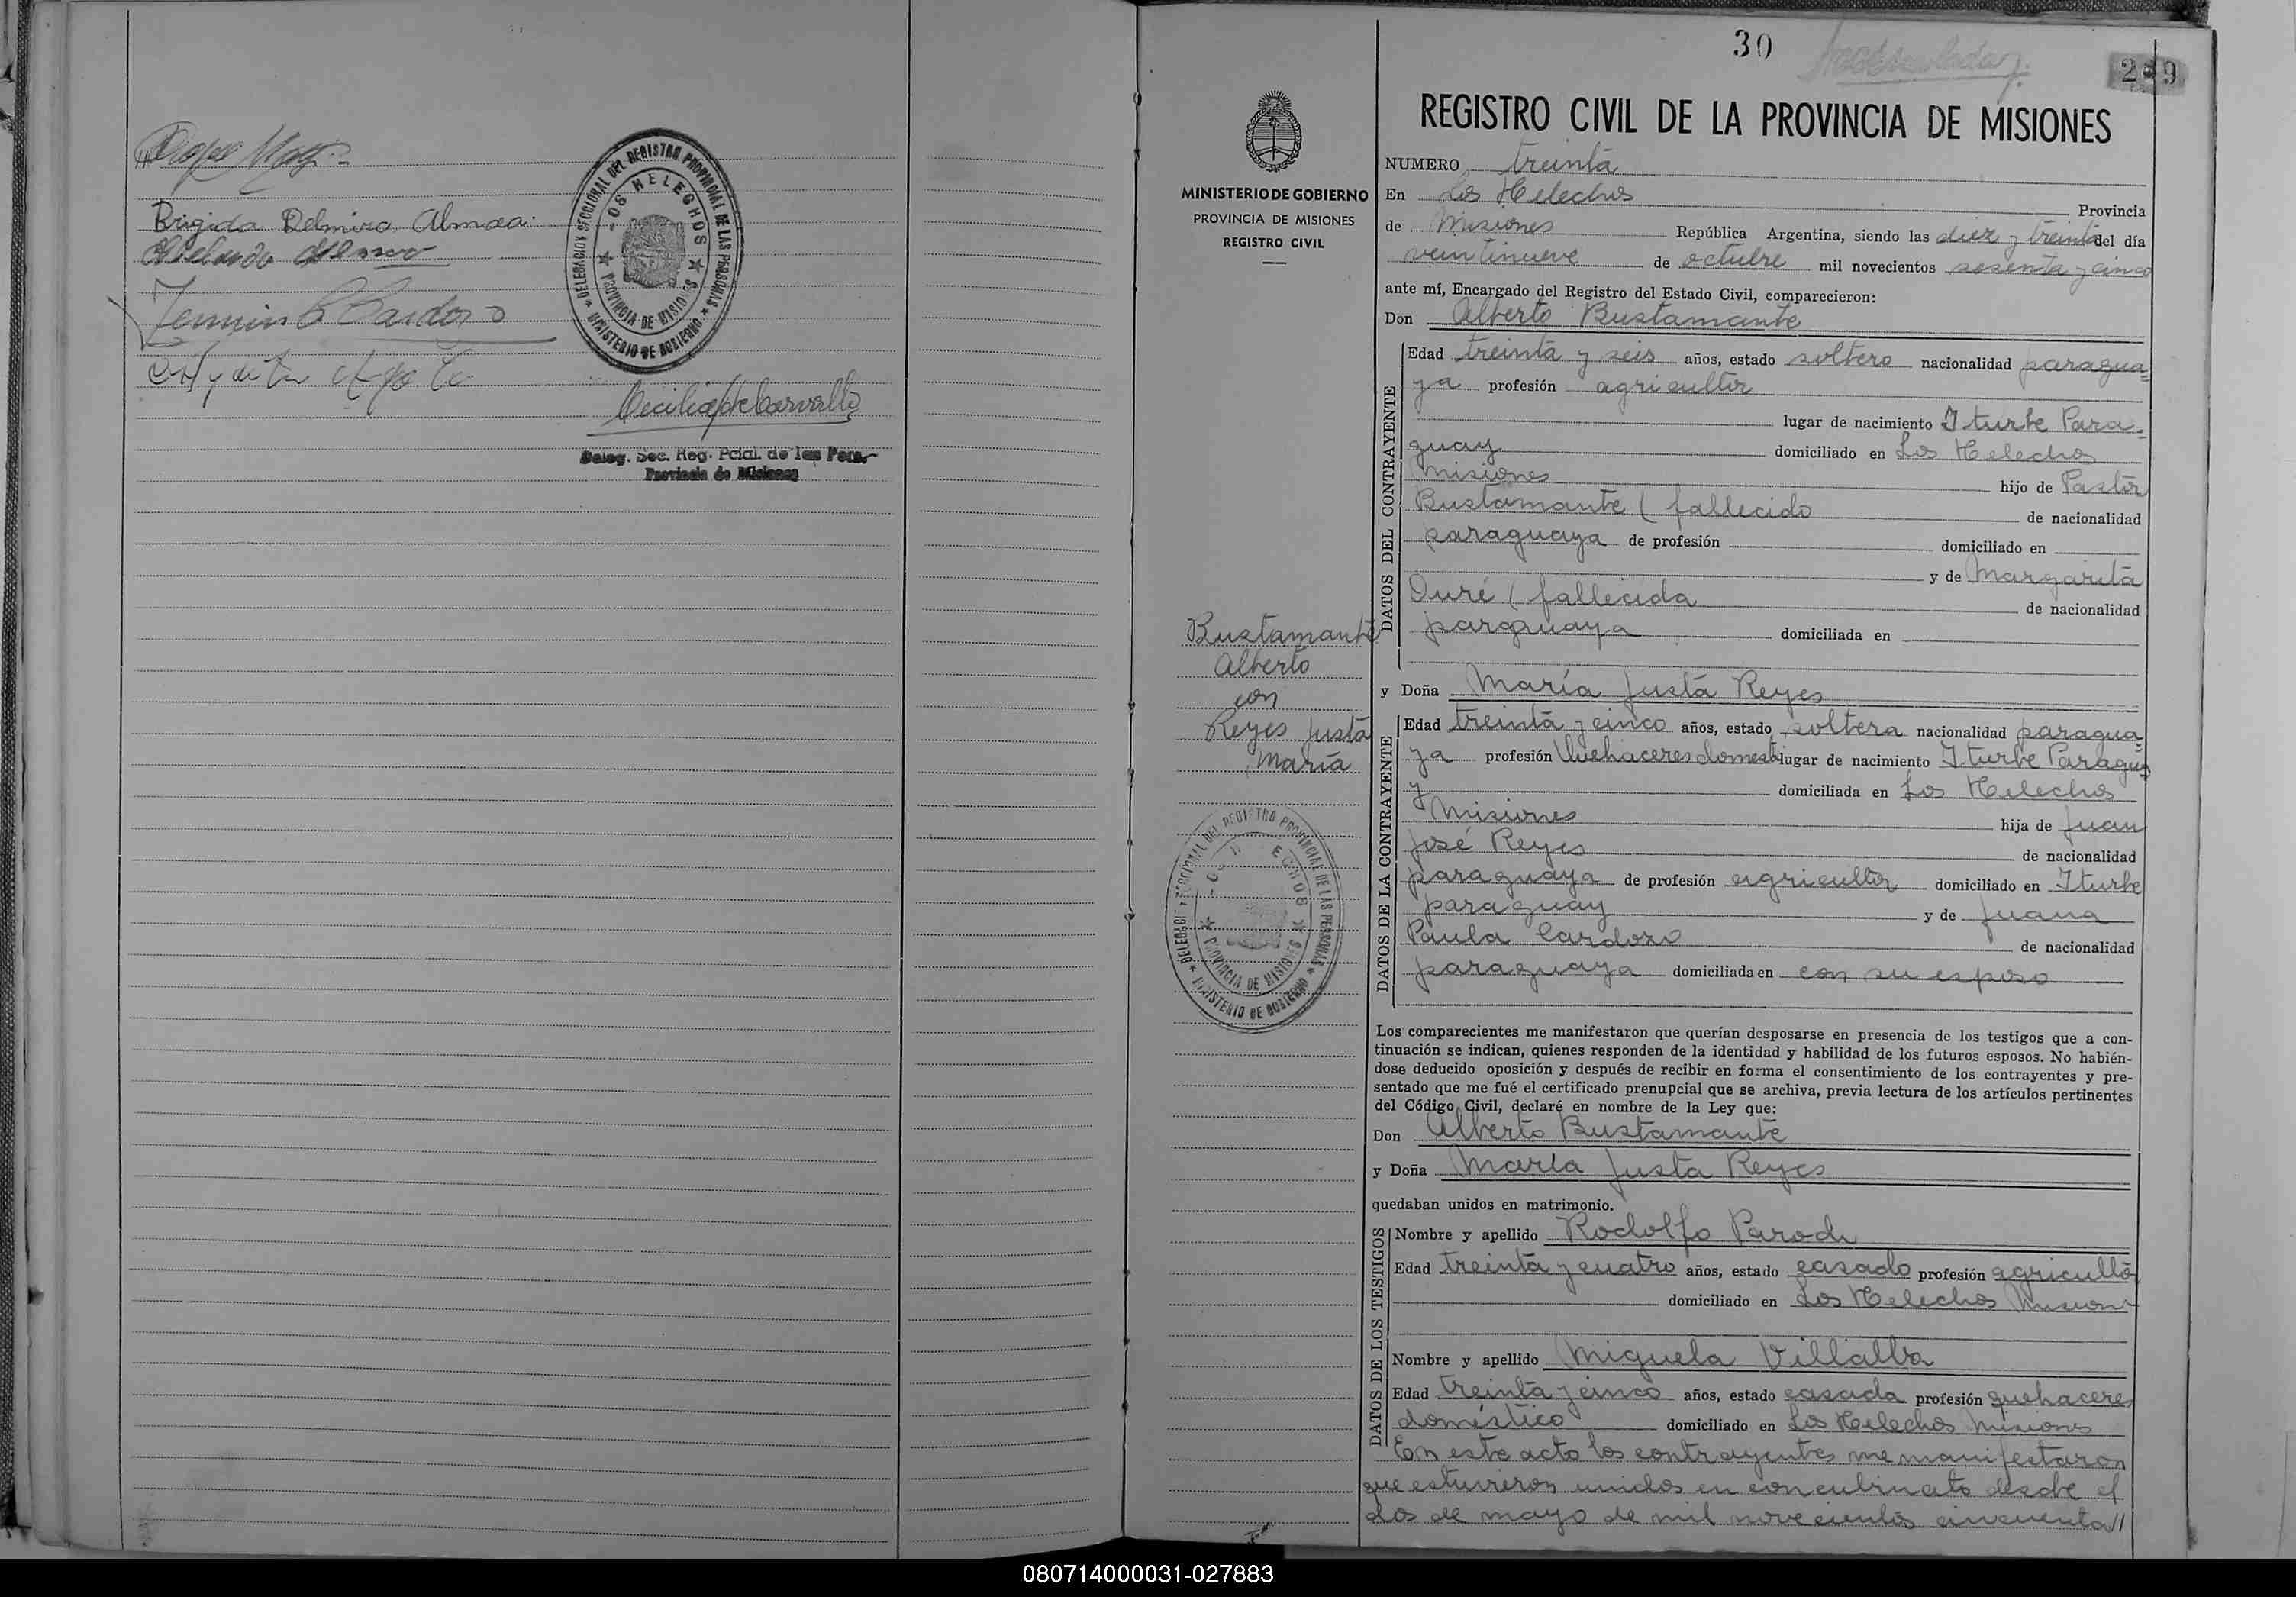 Brigida Delmira Almea
DELEGACION SECCIONAL DEL REGISTRO PROVINCIAL DE LAS PERSONAS
LOS HELECHOS
PROVINCIA DE MISIONES
MINISTERIO DE GOBIERNO
Deleg. Sec. Reg. Pcial. de las Pers.
Provincia de Misiones
30
REGISTRO CIVIL DE LA PROVINCIA DE MISIONES
MINISTERIO DE GOBIERNO
PROVINCIA DE MISIONES
REGISTRO CIVIL
NUMERO treinta
En Los Helechos Provincia
de Misiones República Argentina, siendo las diez y treinta del día
veintinueve de octubre mil novecientos sesenta y cinco
ante mí, Encargado del Registro del Estado Civil, comparecieron:
Don Alberto Bustamante
DATOS DEL CONTRAYENTE
Edad treinta y seis años, estado soltero nacionalidad paragua=
ya profesión agricultor
lugar de nacimiento Iturbe Para=
guay domiciliado en Los Helechos
Misiones hijo de Pastor
Bustamante ( fallecido de nacionalidad
paraguaya de profesión domiciliado en
y de Margarita
Duré ( fallecida de nacionalidad
parguaya domiciliada en
Bustamante
Alberto
con
Reyes Justa
María
y Doña María Justa Reyes
DATOS DE LA CONTRAYENTE
Edad treinta y cinco años, estado soltera nacionalidad paragua=
ya profesión Quehaceres domest lugar de nacimiento Iturbe Paragua
y domiciliada en Los Helechos
Misiones hija de Juan
José Reyes de nacionalidad
paraguaya de profesión agricultor domiciliado en Iturbe
paraguay y de Juana
Paula Cardozo de nacionalidad
paraguaya domiciliada en con su esposo
DELEGACION SECCIONAL DEL REGISTRO PROVINCIAL DE LAS PERSONAS
PROVINCIA DE MISIONES
MINISTERIO DE GOBIERNO
Los comparecientes me manifestaron que querían desposarse en presencia de los testigos que a con-
tinuación se indican, quienes responden de la identidad y habilidad de los futuros esposos. No habién-
dose deducido oposición y después de recibir en forma el consentimiento de los contrayentes y pre-
sentado que me fué el certificado prenupcial que se archiva, previa lectura de los artículos pertinentes
del Código Civil, declaré en nombre de la Ley que:
Don Alberto Bustamante
y Doña María Justa Reyes
quedaban unidos en matrimonio.
DATOS DE LOS TESTIGOS
Nombre y apellido Rodolfo Parodi
Edad treinta y cuatro años, estado casado profesión agricultor
domiciliado en Los Helechos Misiones
Nombre y apellido Miguela Villalba
Edad treinta y cinco años, estado casada profesión quehaceres
doméstico domiciliado en Los Helechos Misiones
En este acto los contrayentes me manifestaron
que estuvieron unidos en concubinato desde el
dos de mayo de mil novecientos cincuenta//
080714000031-027883